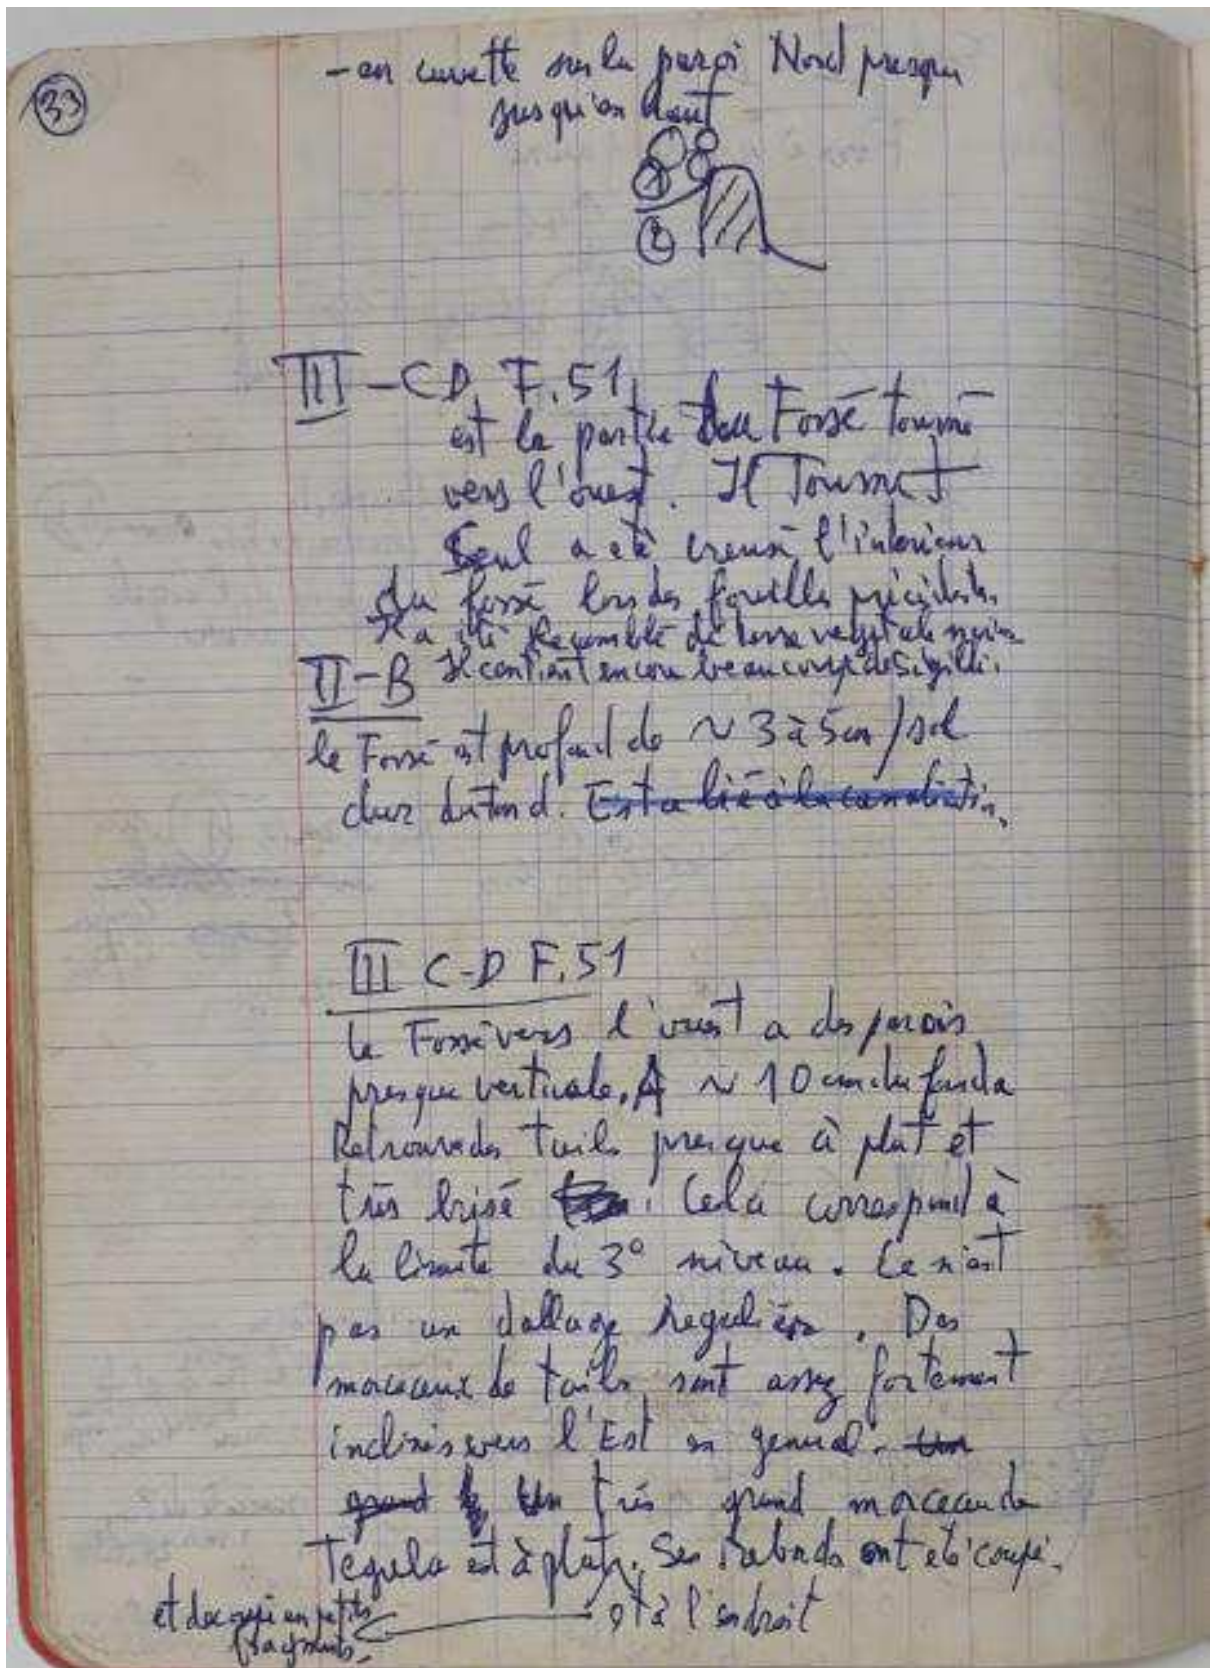 33
- en cuvette sur la paroi Nord presque
jusqu'en haut
1
2
III - CD. F. 51
est la partie du Fossé tourné
vers l'ouest. Il Tournet
Seul a été creusé l'interieur
du fossé lors des fouilles précédentes.
Il a été Recomblé de terre vegetale noire
II - B Il contient encore beaucoup de Sigillé.
le Fossé est profond de ~ 3 à 5 cm / sol
dur du fond. Est a lié à la
III C-D F. 51
le Fossé vers l'ouest a des parois
presque verticale. A ~ 10 cm du fond a
Retrouvé des tuiles presque à plat et
très brisé. Cela correspond à
la limite du 3° niveau. Ce n'est
pas un dallage Regulier. Des
morceaux de tuiles sont assez fortement
inclinés vers l'Est en general. Un
grand Un très grand morceau de
Tegula est à plat. Ses Rebords ont été coupé.
et à l'endroit
et decoupé en petits
fragments.